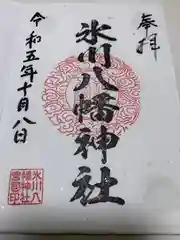 奉拝
氷川八幡神社
令和五年十月八日
氷川八
幡神社